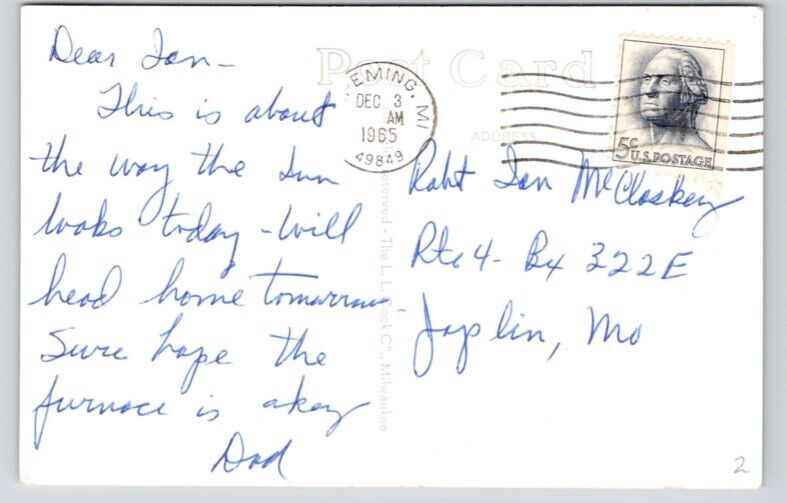 Dear Ian -
This is about
the way the Inn
looks today - Will
head home tomorrow -
Sure hope the
furnace is okay
Dad
Post Card
EMING, MI
DEC 3
AM
1965
49849
ADDRESS
5¢
U.S. POSTAGE
Robt Ian McCloskey
Rte 4 - Bx 322E
Joplin, Mo
reserved - The L. L. Cook Co., Milwaukee
2